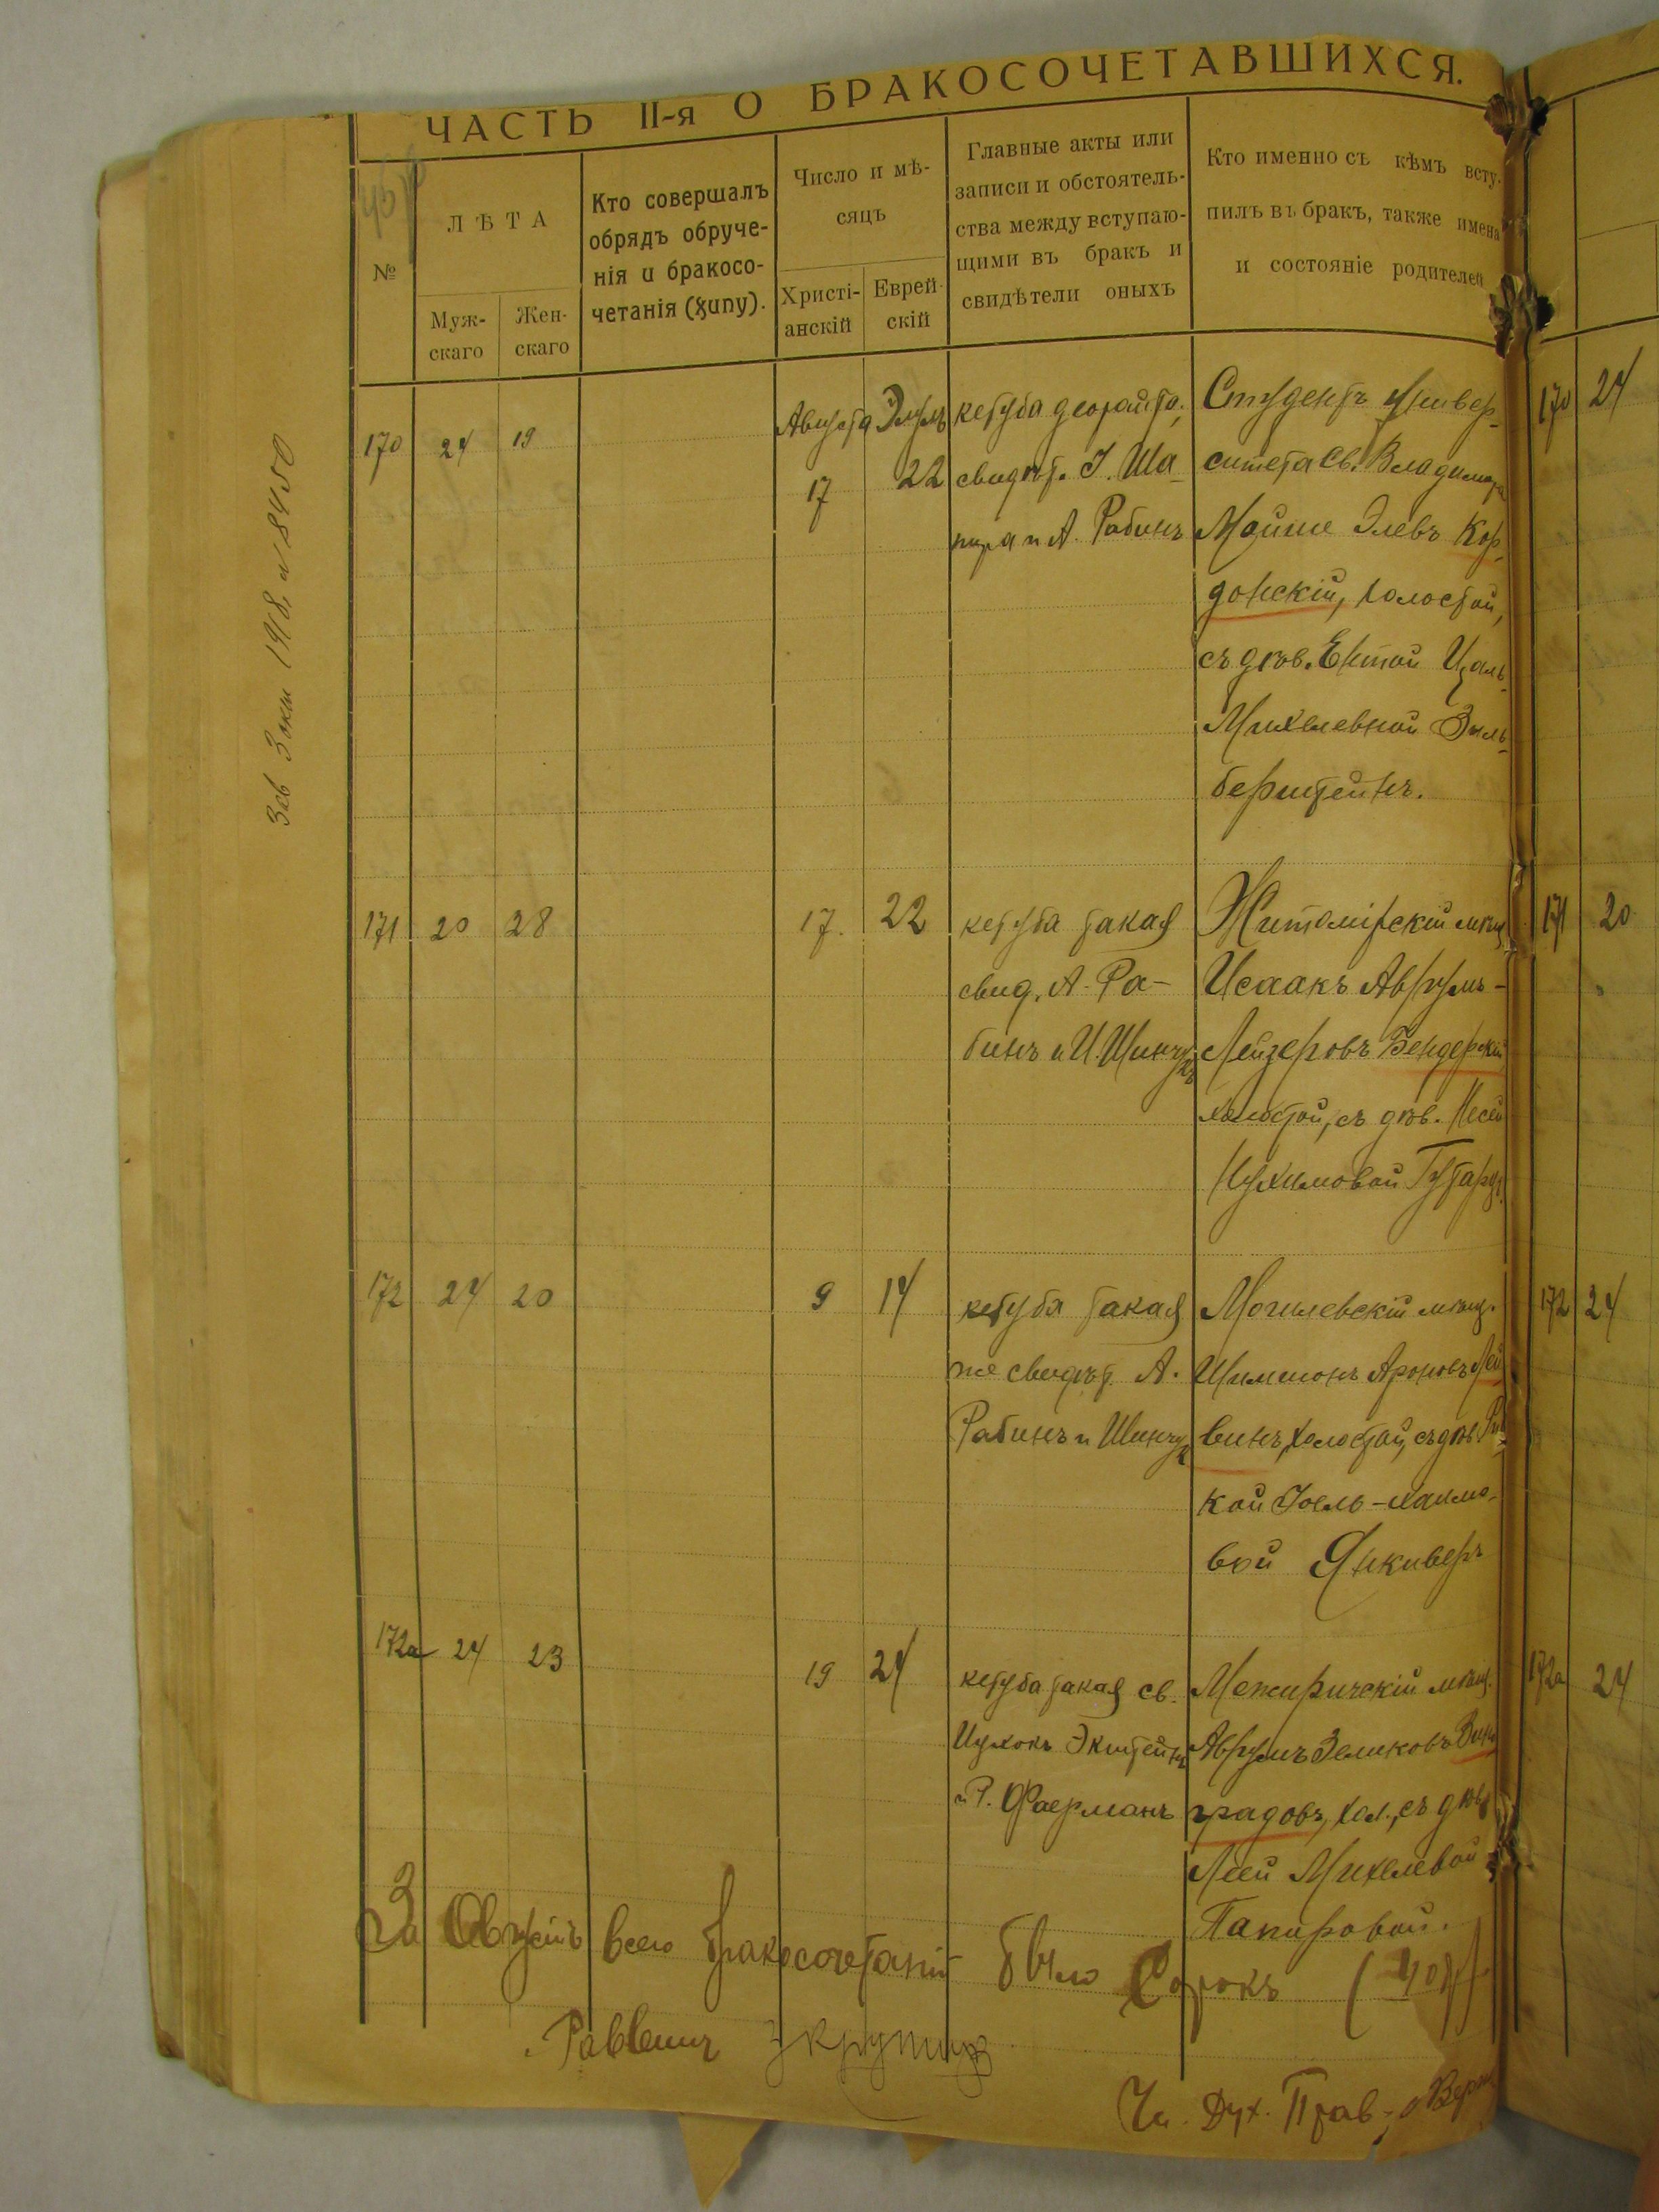 ЧАСТЬ II-я О БРАКОСОЧЕТАВШИХСЯ.
№
ЛѢТА
Муж-
скаго
Жен-
скаго
Кто совершалъ
обрядъ обруче-
нія и бракосо-
четанія (хупу).
Число и мѣ-
сяцъ
Христі-
анскій
Еврей-
скій
Главные акты или
записи и обстоятель-
ства между вступаю-
щими въ бракъ и
свидѣтели оныхъ
Кто именно съ кѣмъ всту-
пилъ въ бракъ, также имена
и состояніе родителей
1918, № 8450
170 24 19
Августа Элулъ
17 22
кетуба деорайта,
свидѣт. I. Ша-
пира и А. Рабинъ
Студентъ Универ-
ситета Св. Владимира
Мойше Элевъ Кор-
донскій, холостой,
съ дѣв. Ентой Цаль-
Михелевной Зиль-
берштейнъ.
170 24
171 20 28
17. 22
кетуба такая
свид. А. Ра-
бинъ и И. Шинчукъ
Житомірскій мѣщ.
Исаакъ Аврумъ-
Лейзеровъ Бендерскій
холостой, съ дѣв. Несей
Нухимовой
171 20
172 24 20
9 14
кетуба такая
же свидѣт. А.
Рабинъ и Шинчук
Могилевскій мѣщ.
Шимшонъ Ароновъ Лей
винъ, холостой, съ дѣв. Рив
кой Іоель-Хаимо-
вой Янкиверъ
172 24
172а 24 23
19 24
кетуба такая св.
Ицхокъ Экштейнъ
и Р. Фаерманъ
Межиричскій мѣщ.
Аврумъ Зеликовъ Вино
градовъ, хол., съ дѣв
Леей Михелевой
Папировой.
172а 24
За Августъ всего бракосочетаній было Сорокъ (40)
Раввинъ
Чл. Дух. Прав.